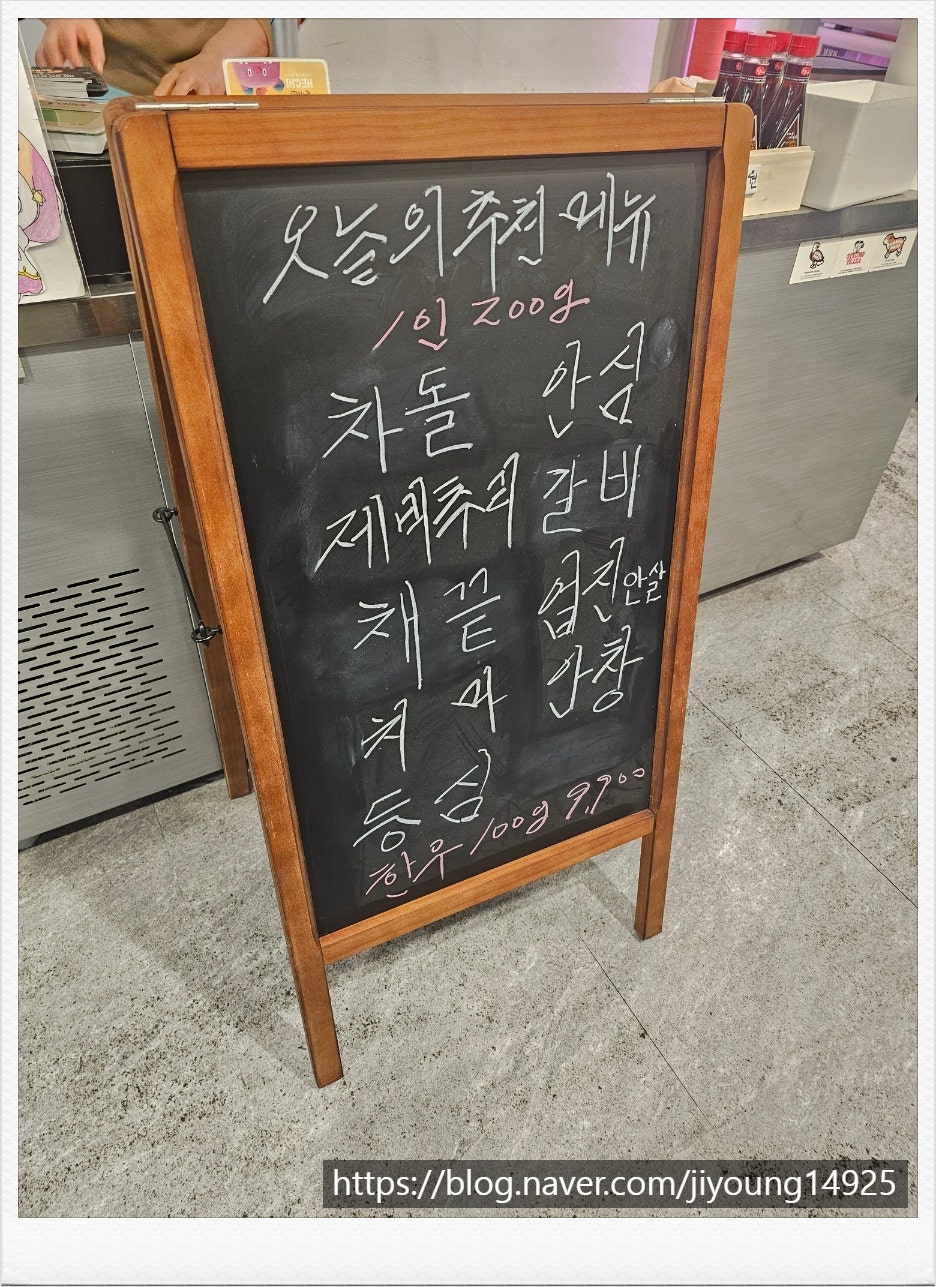 오늘의 추천 메뉴
1인 200g
차돌 안심
제비추리 갈비
채끝 업진안살
치마 안창
등심
한우 100g 9,900
https://blog.naver.com/jiyoung14925